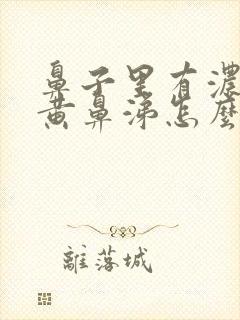 鼻子里有濃
黄鼻涕怎麽
離落城